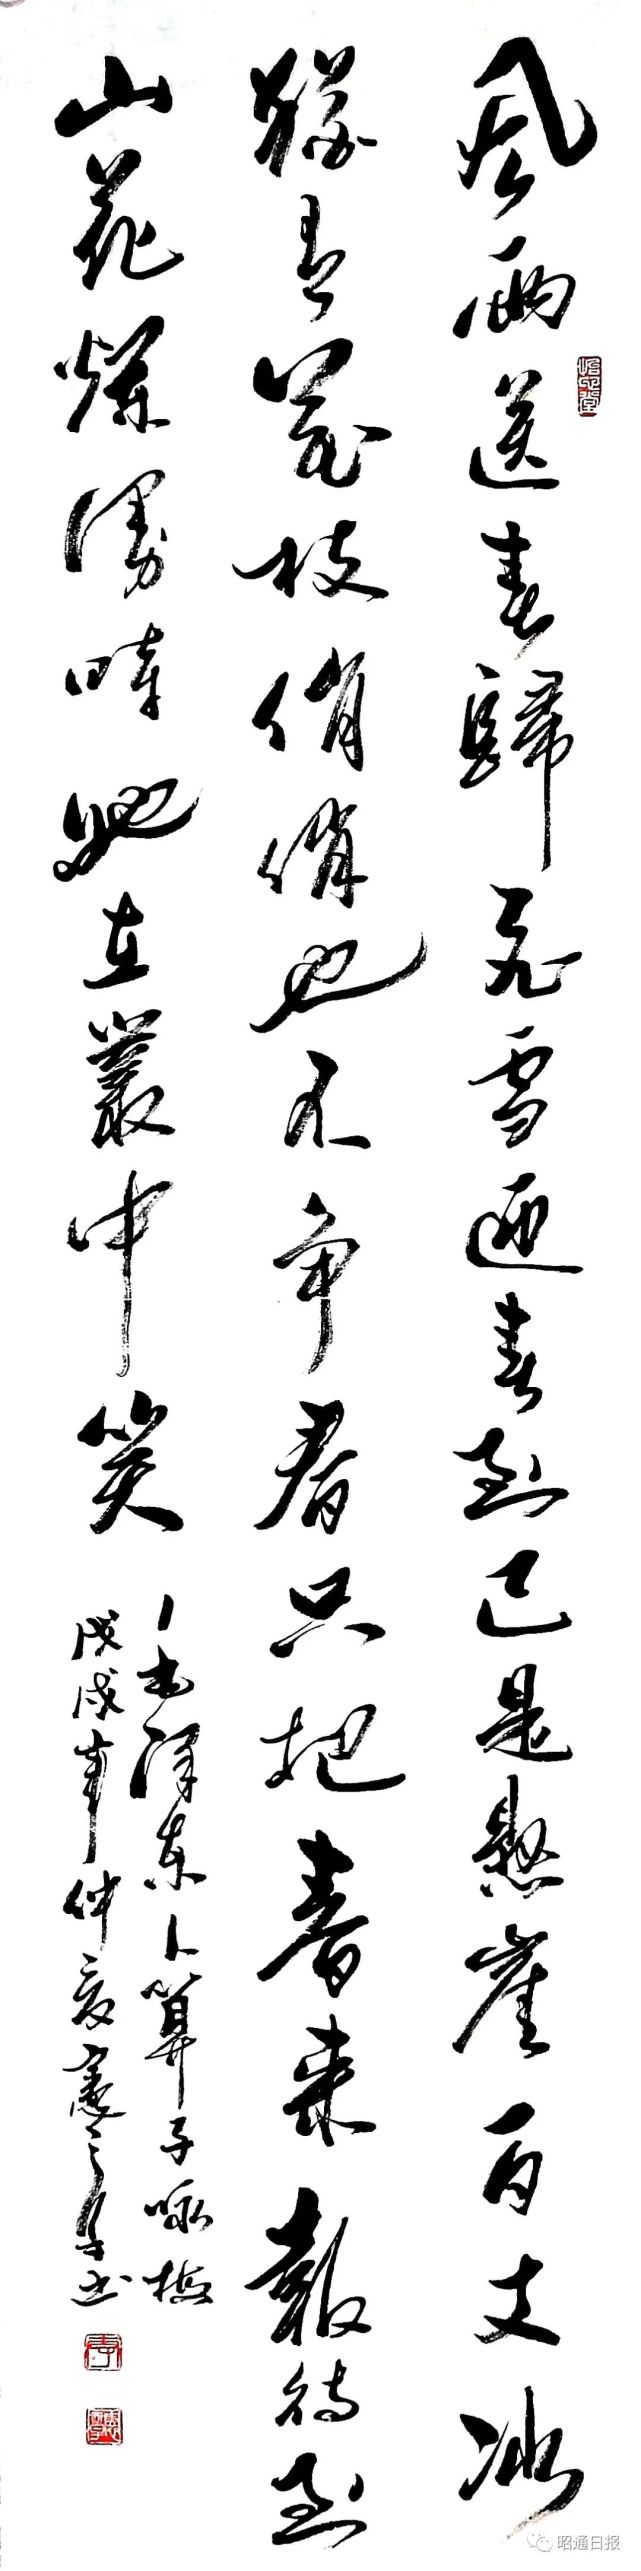 風雨送春歸飛雪迎春到已是懸崖百丈冰
猶有花枝俏俏也不争春只把春来報待到
山花爛漫時她在叢中笑
毛澤東卜算子咏梅
戊戌年仲夏憲书
昭通日报